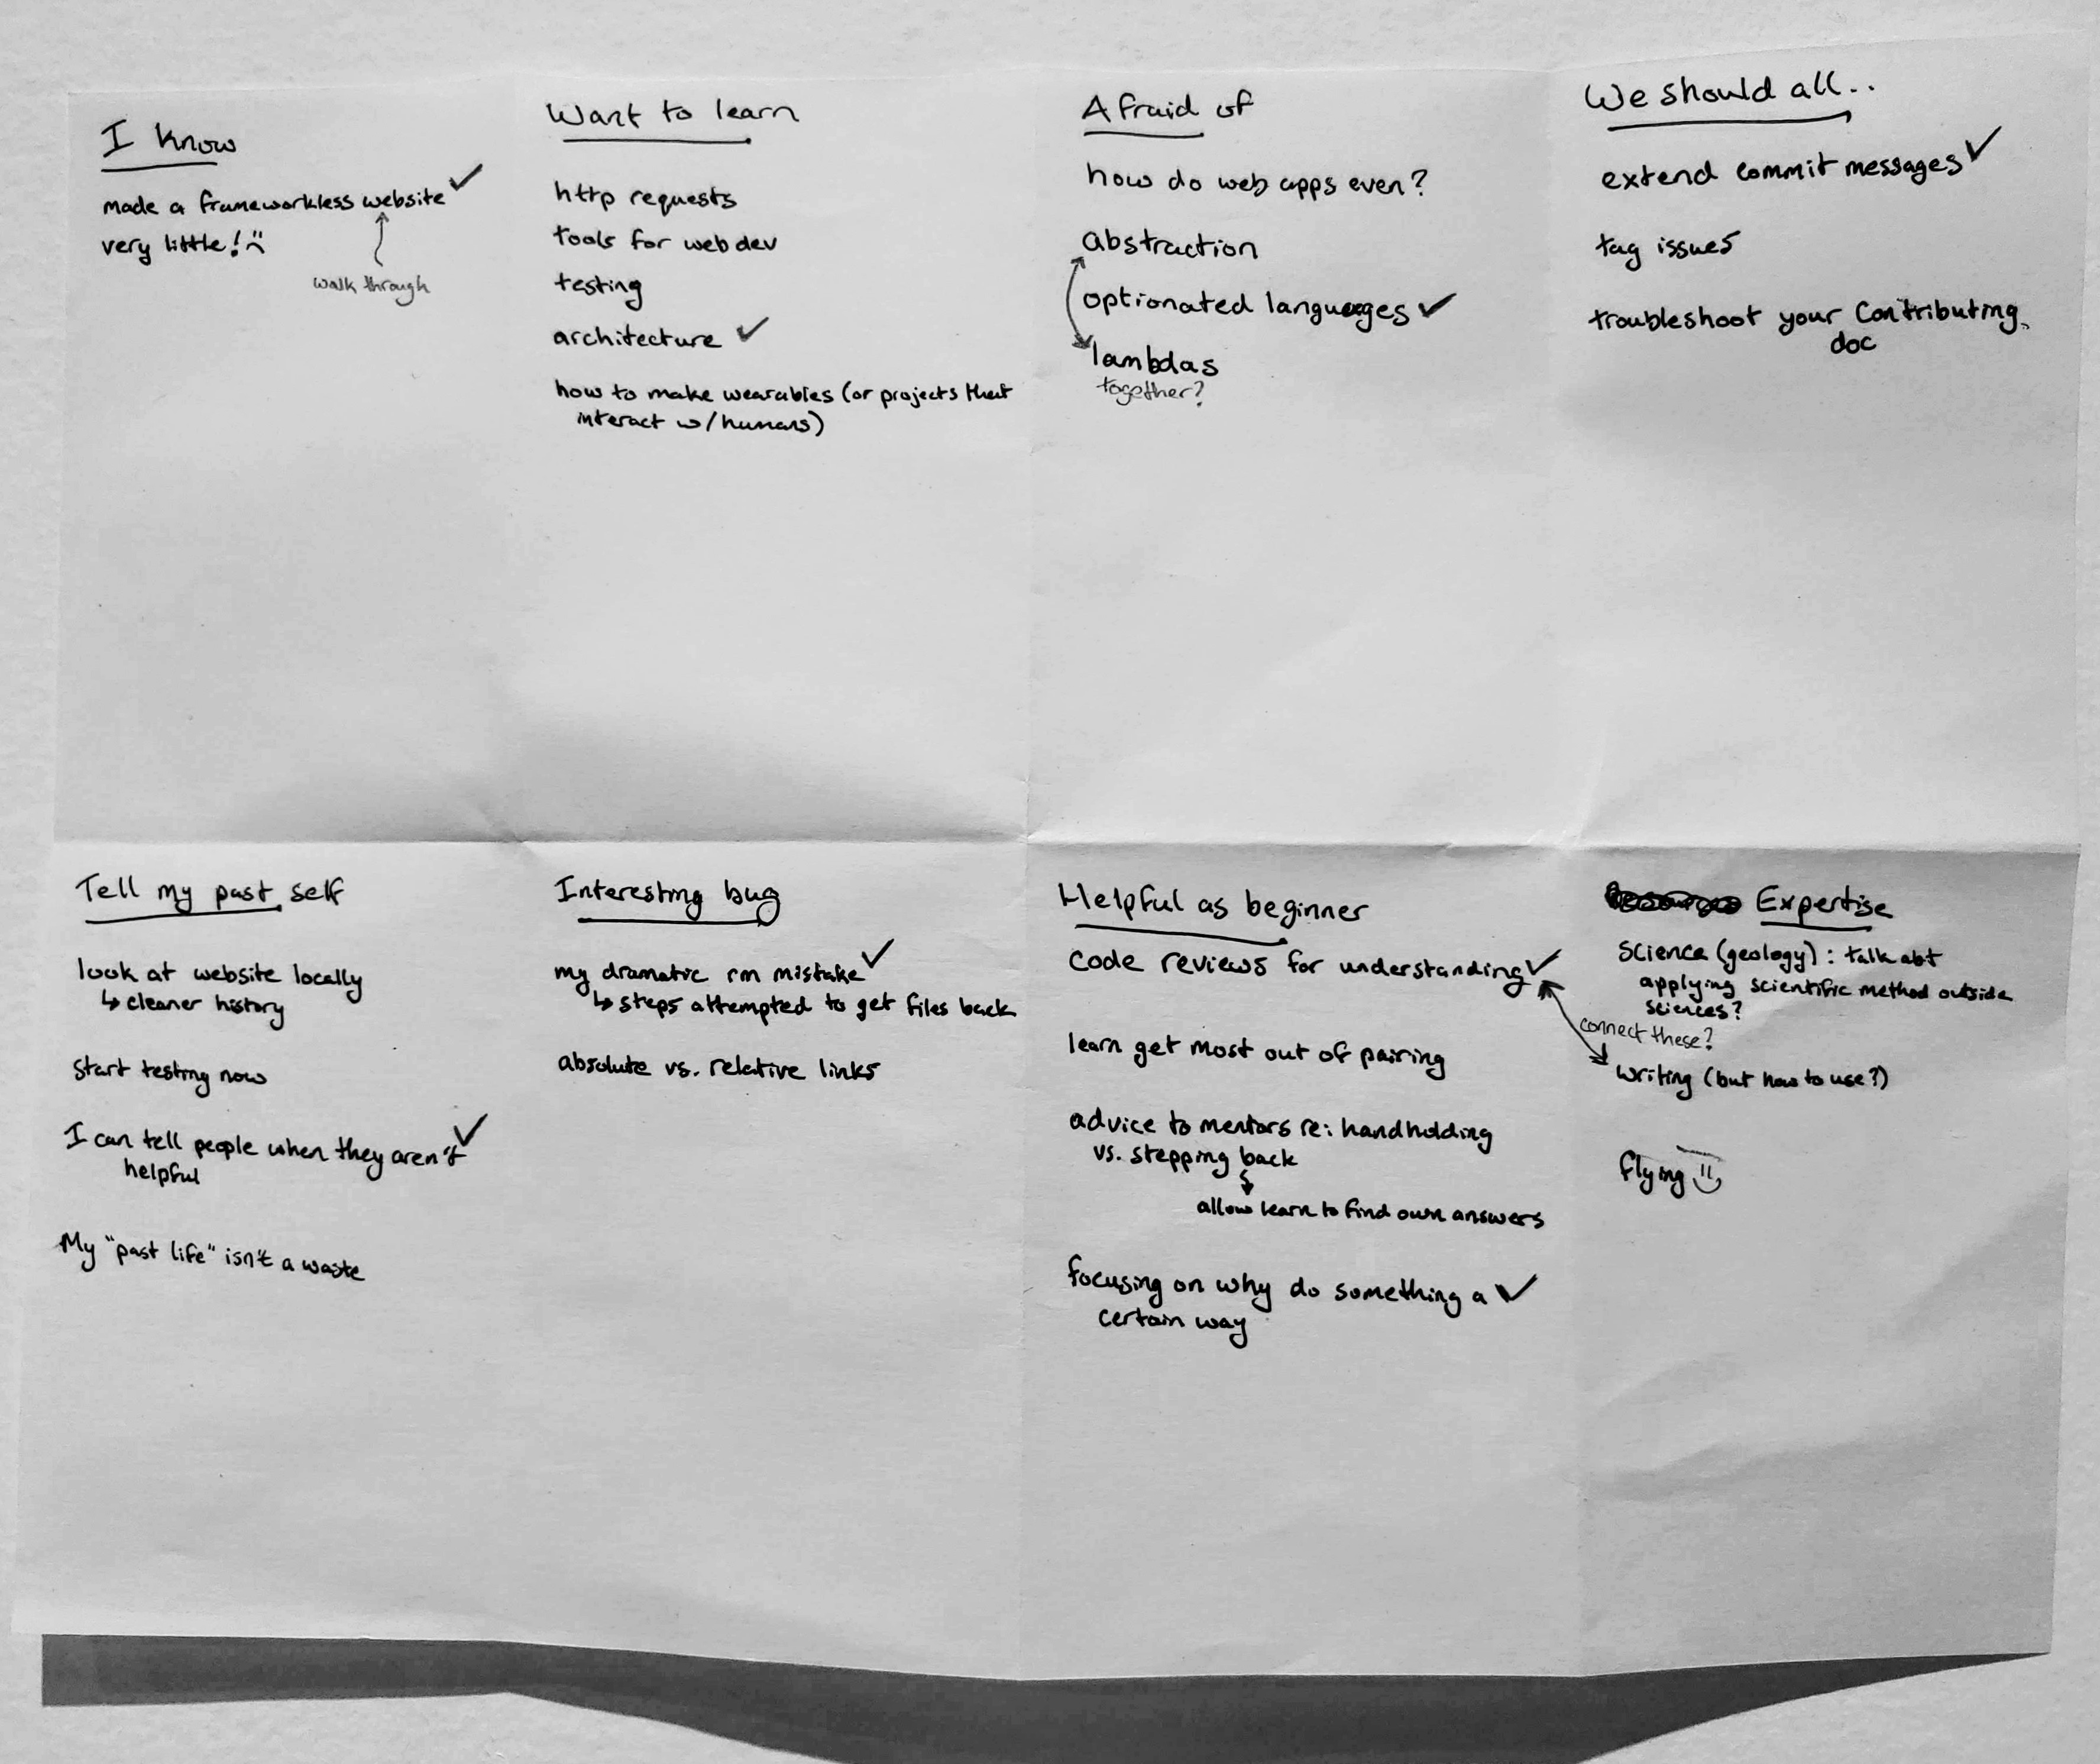 I know
made a frameworkless website ✓
very little! :(
walk through
Want to learn
http requests
tools for web dev
testing
architecture ✓
how to make wearables (or projects that
interact w/humans)
Afraid of
how do web apps even?
abstraction
optionated languages ✓
lambdas
together?
We should all...
extend commit messages ✓
tag issues
troubleshoot your Contributing
doc
Tell my past self
look at website locally
↳ cleaner history
start testing now
I can tell people when they aren't ✓
helpful
My "past life" isn't a waste
Interesting bug
my dramatic rm mistake ✓
↳ steps attempted to get files back
absolute vs. relative links
Helpful as beginner
code reviews for understanding ✓
learn get most out of pairing
advice to mentors re: handholding
vs. stepping back
allow learn to find own answers
focusing on why do something a ✓
certain way
Expertise
science (geology) : talk abt
applying scientific method outside
sciences?
connect these?
writing (but how to use?)
flying :)